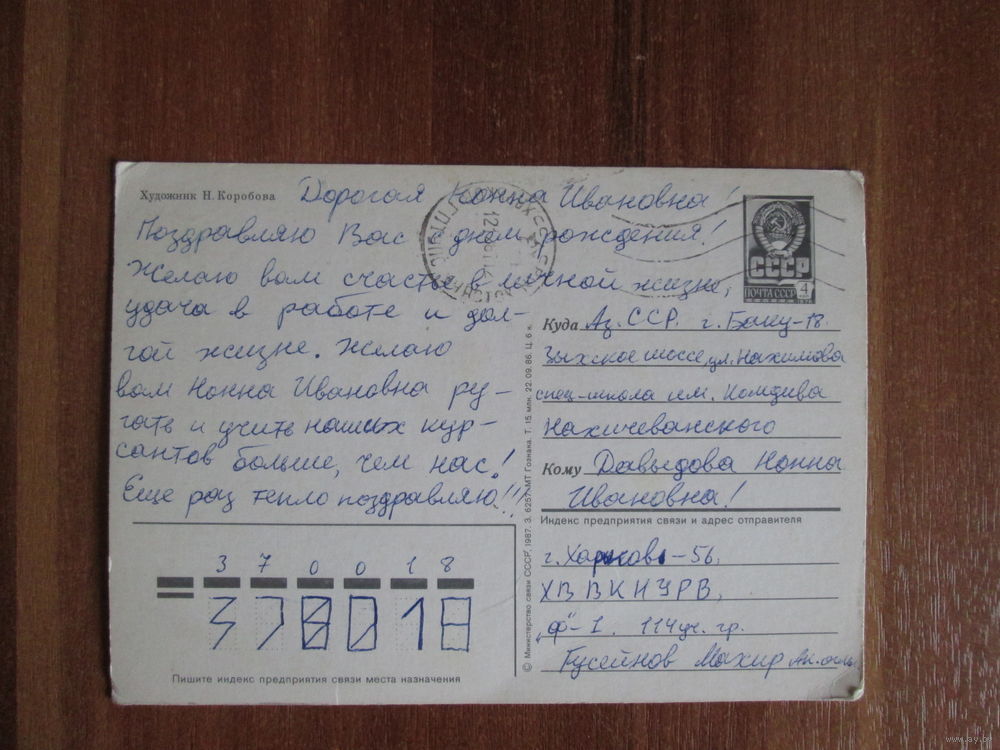 Художник Н. Коробова
Дорогая Нонна Ивановна!
Поздравляю Вас с днём рождения!
Желаю вам счастье в личной жизне,
удача в работе и дол-
гой жизне. Желаю
вам Нонна Ивановна ру-
гать и учить наших кур-
сантов больше, чем нас!
Еще раз тепло поздравляю!!!
СССР
ПОЧТА СССР 4
Куда Аз. ССР. г. Баку-18.
Зыхское шоссе, ул. Нахимова
спец-школа им. Комдива
Нахичеванского
Кому Давыдова Нонна
Ивановна!
Индекс предприятия связи и адрес отправителя
г. Харьков-56,
ХВВКИУРВ,
„ф"-1. 114 уч. гр.
Гусейнов Махир
3 7 0 0 1 8
370018
Пишите индекс предприятия связи места назначения
© Министерство связи СССР, 1987. З. 6257. МТ Гознака. Т. 15 млн. 22.09.86. Ц. 6 к.
www.ay.by